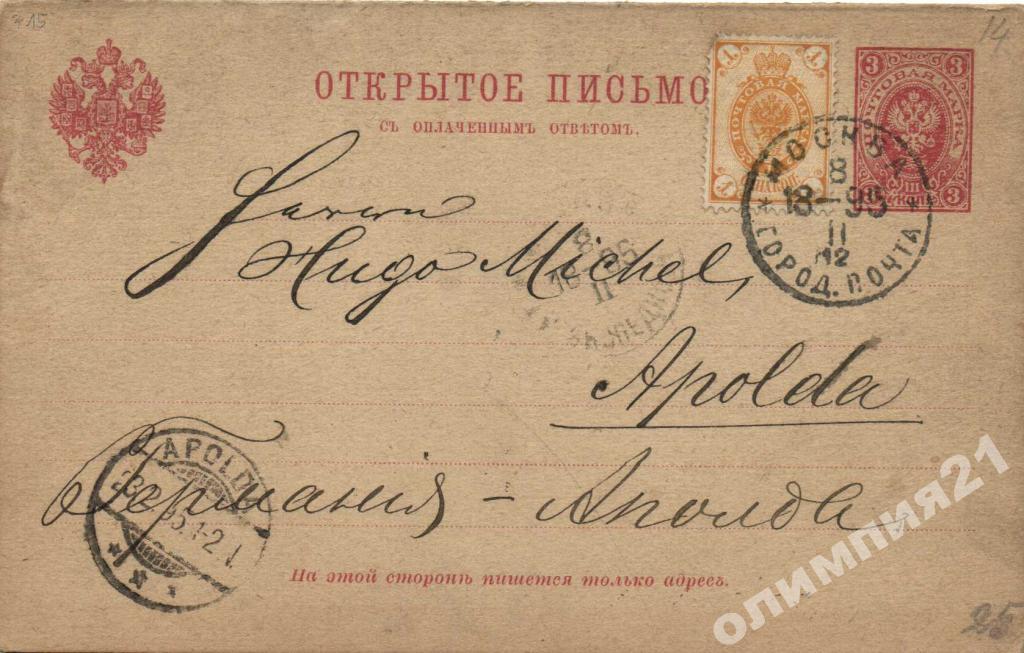 №15
14
ОТКРЫТОЕ ПИСЬМО
СЪ ОПЛАЧЕННЫМЪ ОТВѢТОМЪ.
1 1
ПОЧТОВАЯ МАРКА
1
3 3
ПОЧТОВАЯ МАРКА
3 3
МОСКВА
8
18-95
II
12
ГОРОД. ПОЧТА
Herrn
Hugo Michel,
8
II
Apolda
APOLDA
Германія - Аполда.
1-2
На этой сторонѣ пишется только адресъ.
25
олимпия21